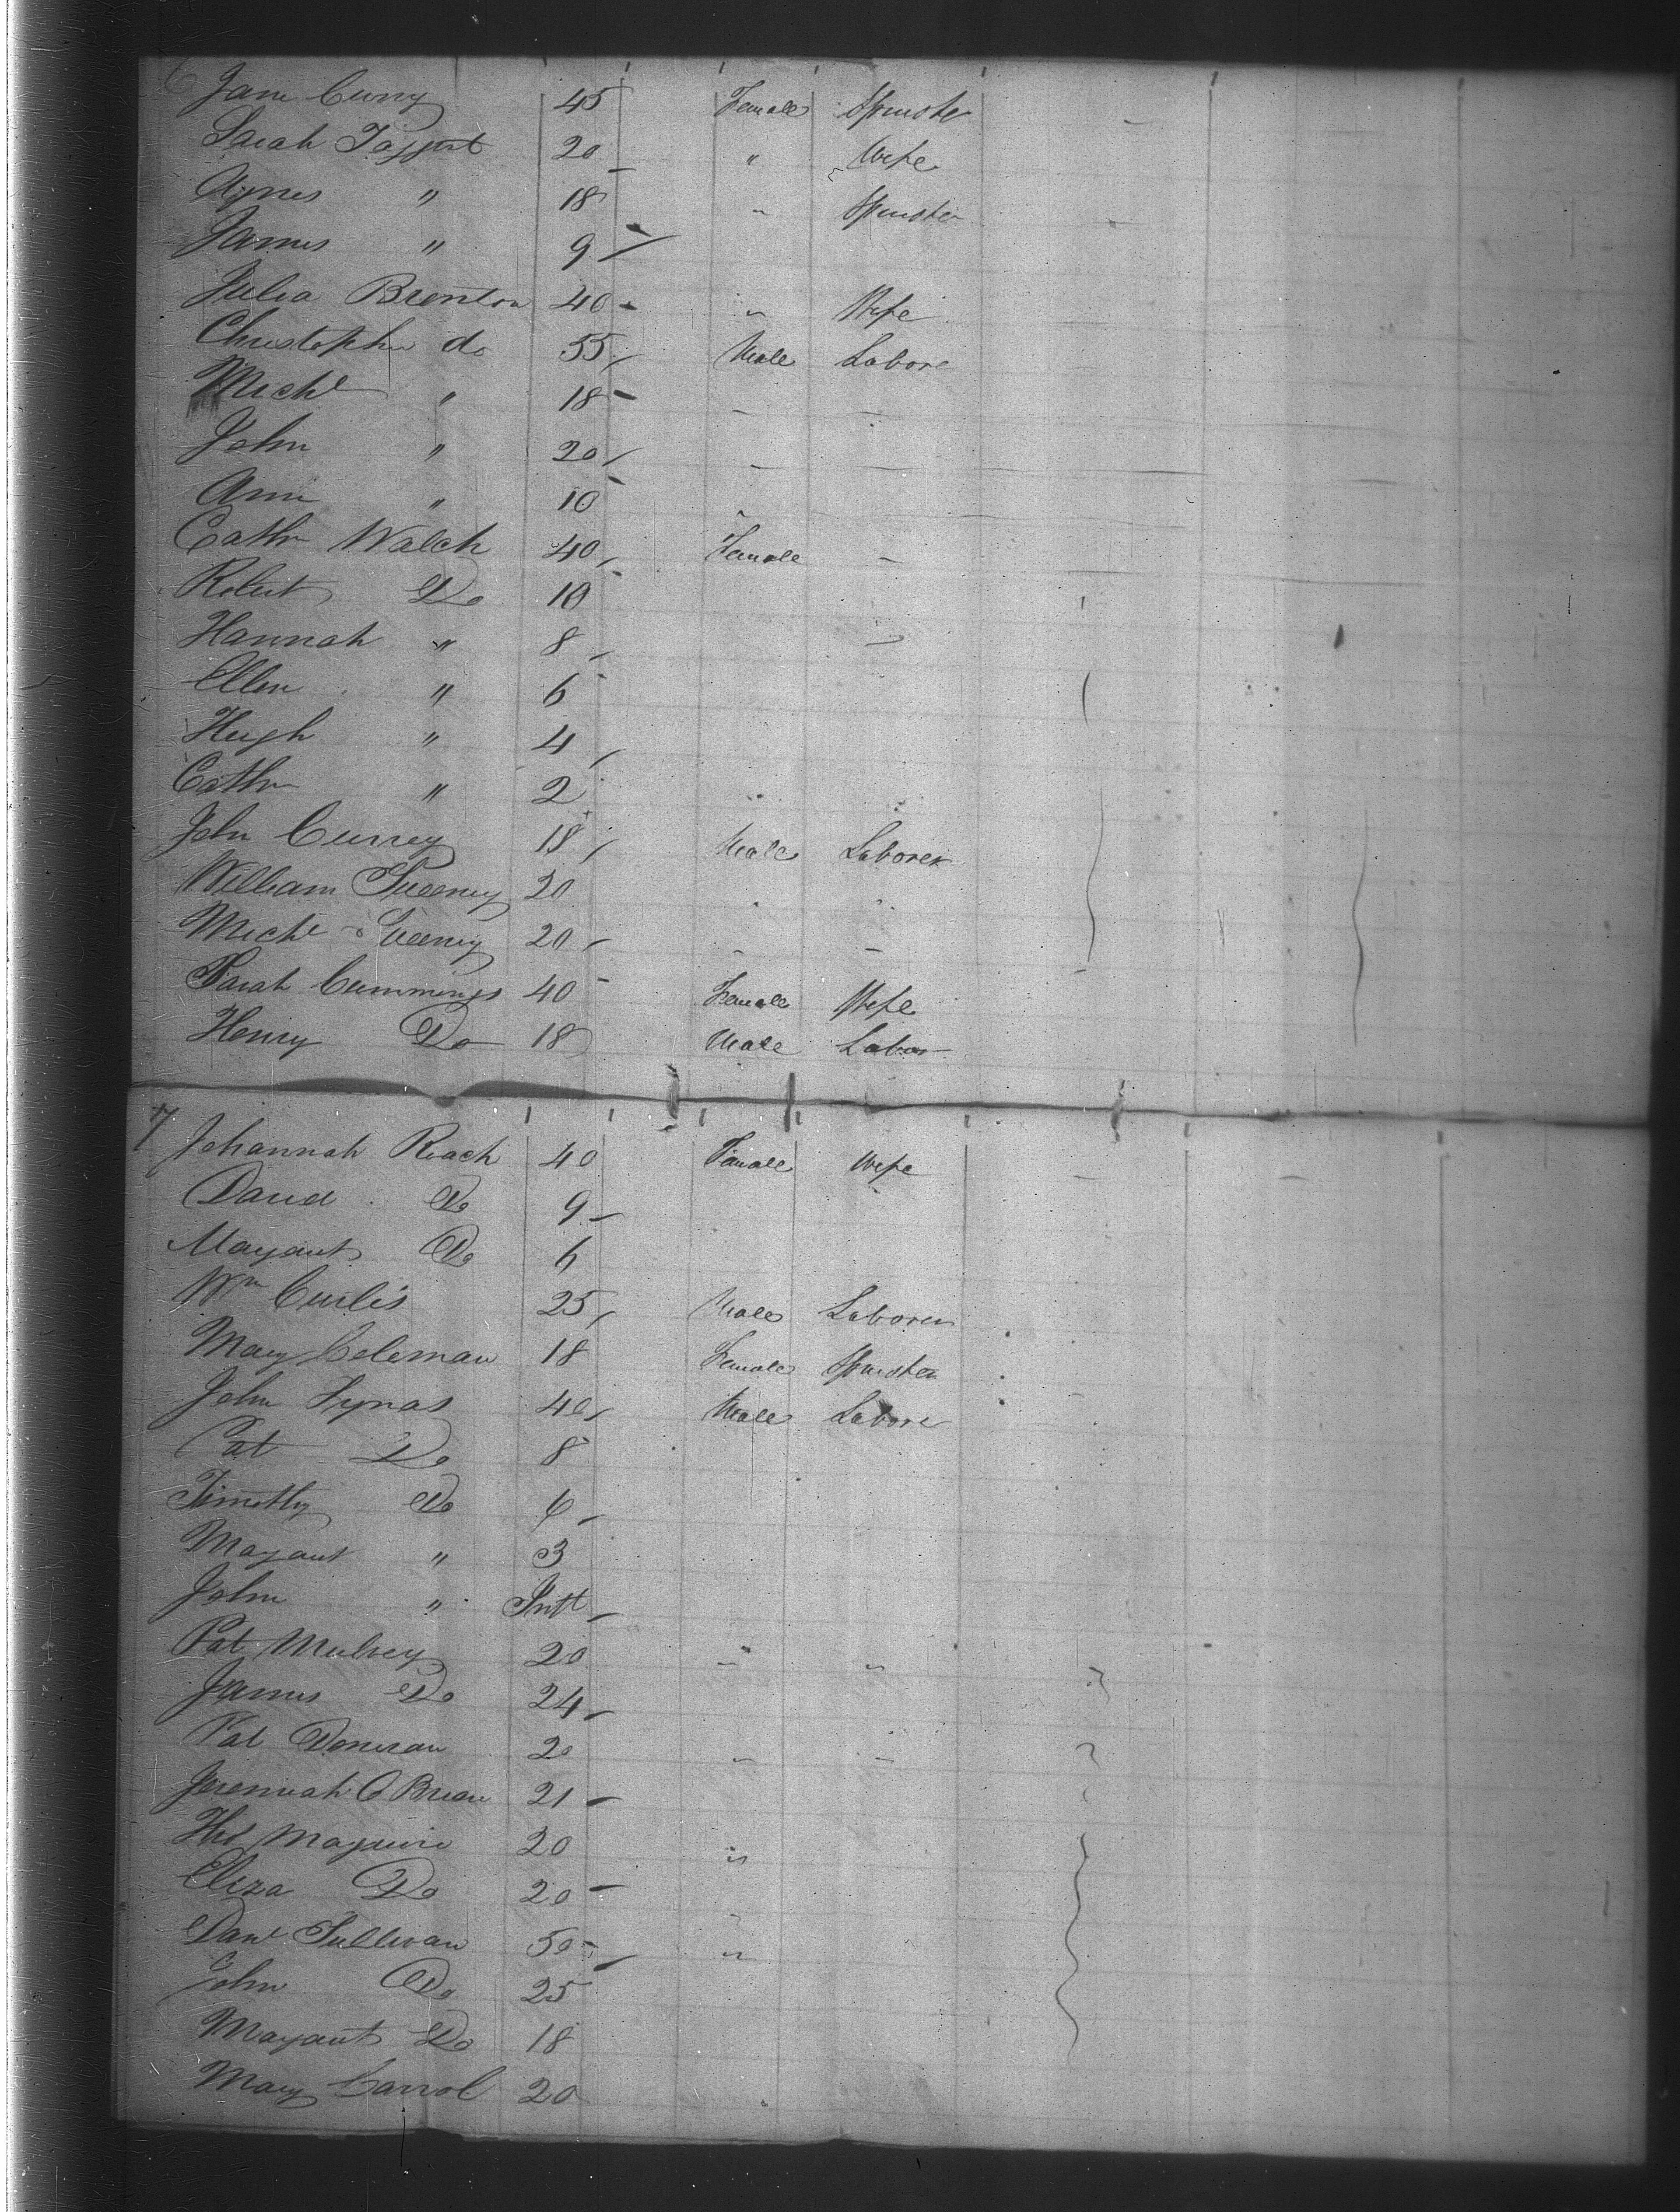 6
Jane Curry 45 Female Spinster
Sarah Taggart 20 " Wife
Agnes " 18 " Spinster
James " 9
Julia Brenton 40 " Wife
Christopher do 55 Male Labore
Michl " 18
John " 20
Ann " 10
Cathn Walch 40 Female
Robert Do 10
Hannah " 8
Ellen " 6
Hugh " 4
Cathn " 2
John Currey 18 Male Laborer
William Sweeney 20
Michl Sweeney 20
Sarah Cummings 40 Female Wife
Henry Do 18 Male Labor
7
Johannah Roach 40 Female Wife
David Do 9
Margaret Do 6
Wm Curlis 25 Male Laborer
Mary Coleman 18 Female Spinster
John Lynas 40 Male Labore
Pat Do 8
Timothy Do 6
Margaret " 3
John " Inft
Pat Mulvey 20 " "
James Do 24
Pat Donovan 20 "
Jeremiah O Brian 21
Maguire 20 "
Eliza Do 20
Danl Sullivan 50 "
John Do 25
Margaret Do 18
Mary Carrol 20